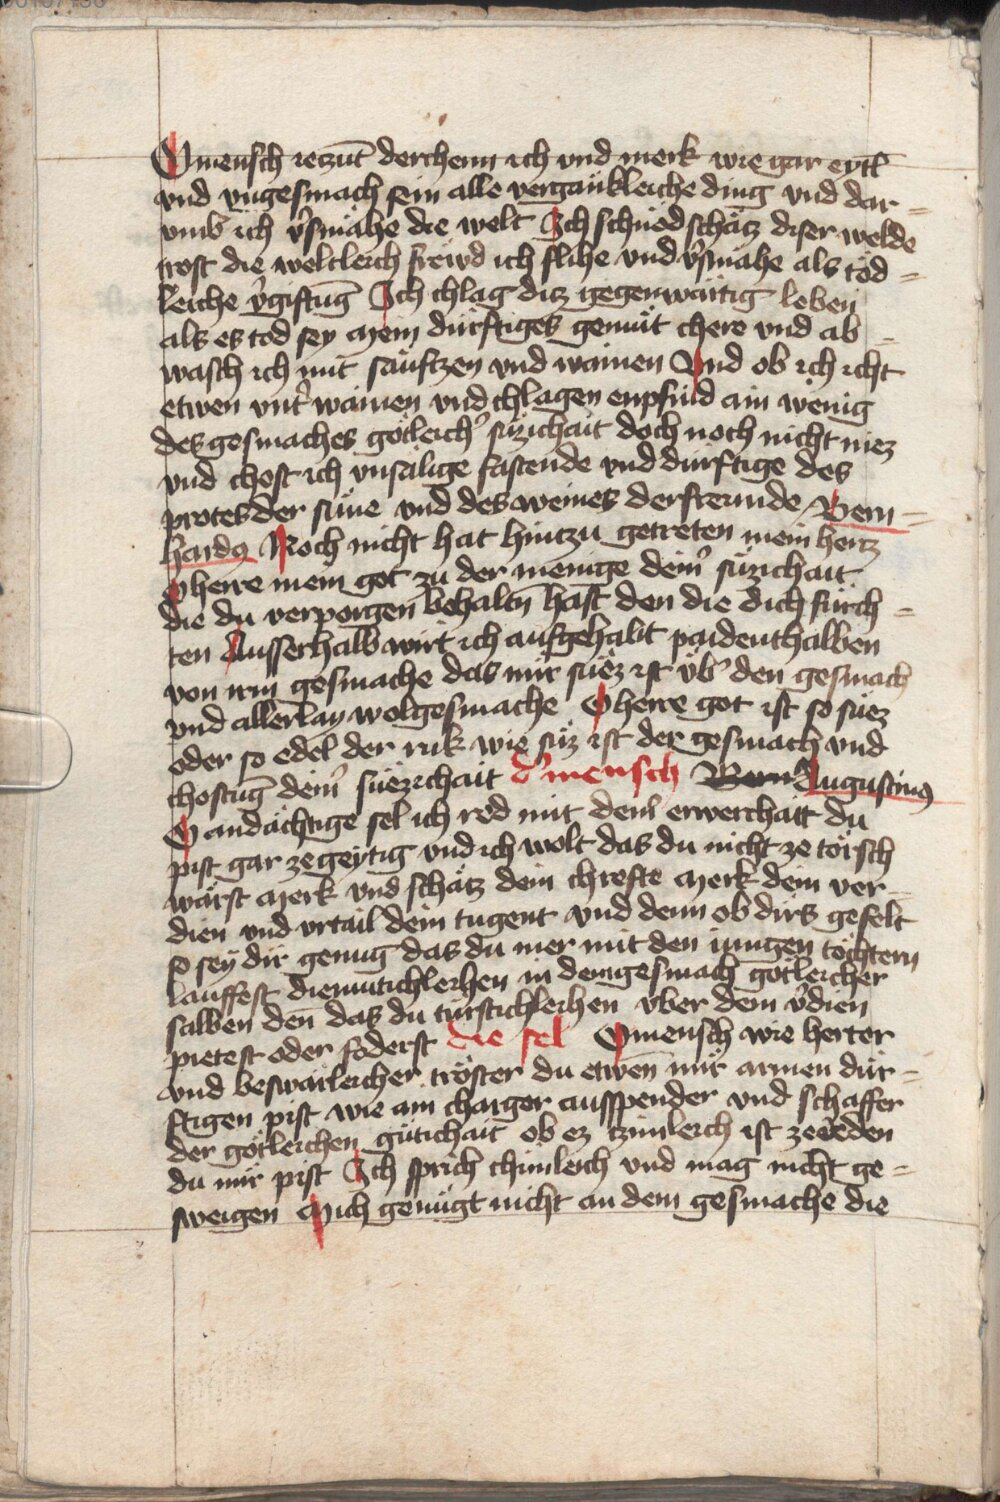 O mensch ieczūt derchenn ich vnd merk wie gar eytl
vnd vngesmach sein alle vergänkleiche ding vnd dar-
vmb ich v̓smähe die welt Ich schnöd schäcz diser welde
trost die weltleich frewd ich flihe vnd v̓smähe als töd-
leiche v̓giftūg Ich chlag dicz gegenwärtig leben
als es tod sey Mein dürftiges gemüt chere vnd ab-
wasch ich mit säuftzen vnd wainen Vnd ob ich icht
etwen vnt̓ wainen vnd chlagen enpfind ain wenig
des gesmaches götleich̓ süzichait doch noch nicht niez
vnd chost ich vnsälige fastende vnd dürftige des
protes der süne vnd des weines der frewnde Bern-
hardꝰ Noch nicht hat hintzu getreten mein hertz
O herre mein got zu der menige dein̓ süzichait
die du verporgen behalt̄n hast den die dich fürch-
ten Ausserhalb wirt ich aufgehabt paidenthalben
von irm gesmache das mir süez ist üb̓ den gesmach
vnd allerlay wolgesmache O herre got ist so süez
oder so edel der ruk wie süz ist der gesmach vnd
chostūg dein̓ süezichait d̓ mensch Bern Augustinꝰ
O andächtige sel ich red mit dein̓ erwerchait du
pist gar ze geytig vnd ich wolt das du nicht ze törsch
wärst Merk vnd schäcz dein chrefte Merk dein ver-
dien vnd vrtail dein tugent vnd denn ob dirs geselt
so sey dir genug das du mer mit den iungen töchtern
lauffest diemutichleihen in dem gesmach götleicher
salben den̄ das du türstichleihen vber dem v̓dien
pietest oder foderst die sel O mensch wie herter
vnd beswärleicher tröster du etwen̄ mir armen dür-
ftigen pist wie ain charger ausspender vnd schaffer
der götleichen gütichait ob ez czimleich ist ze reden
du mir pist Ich sprich chünleich vnd mag nicht ge-
sweigen Mich genügt nicht an dem gesmache die